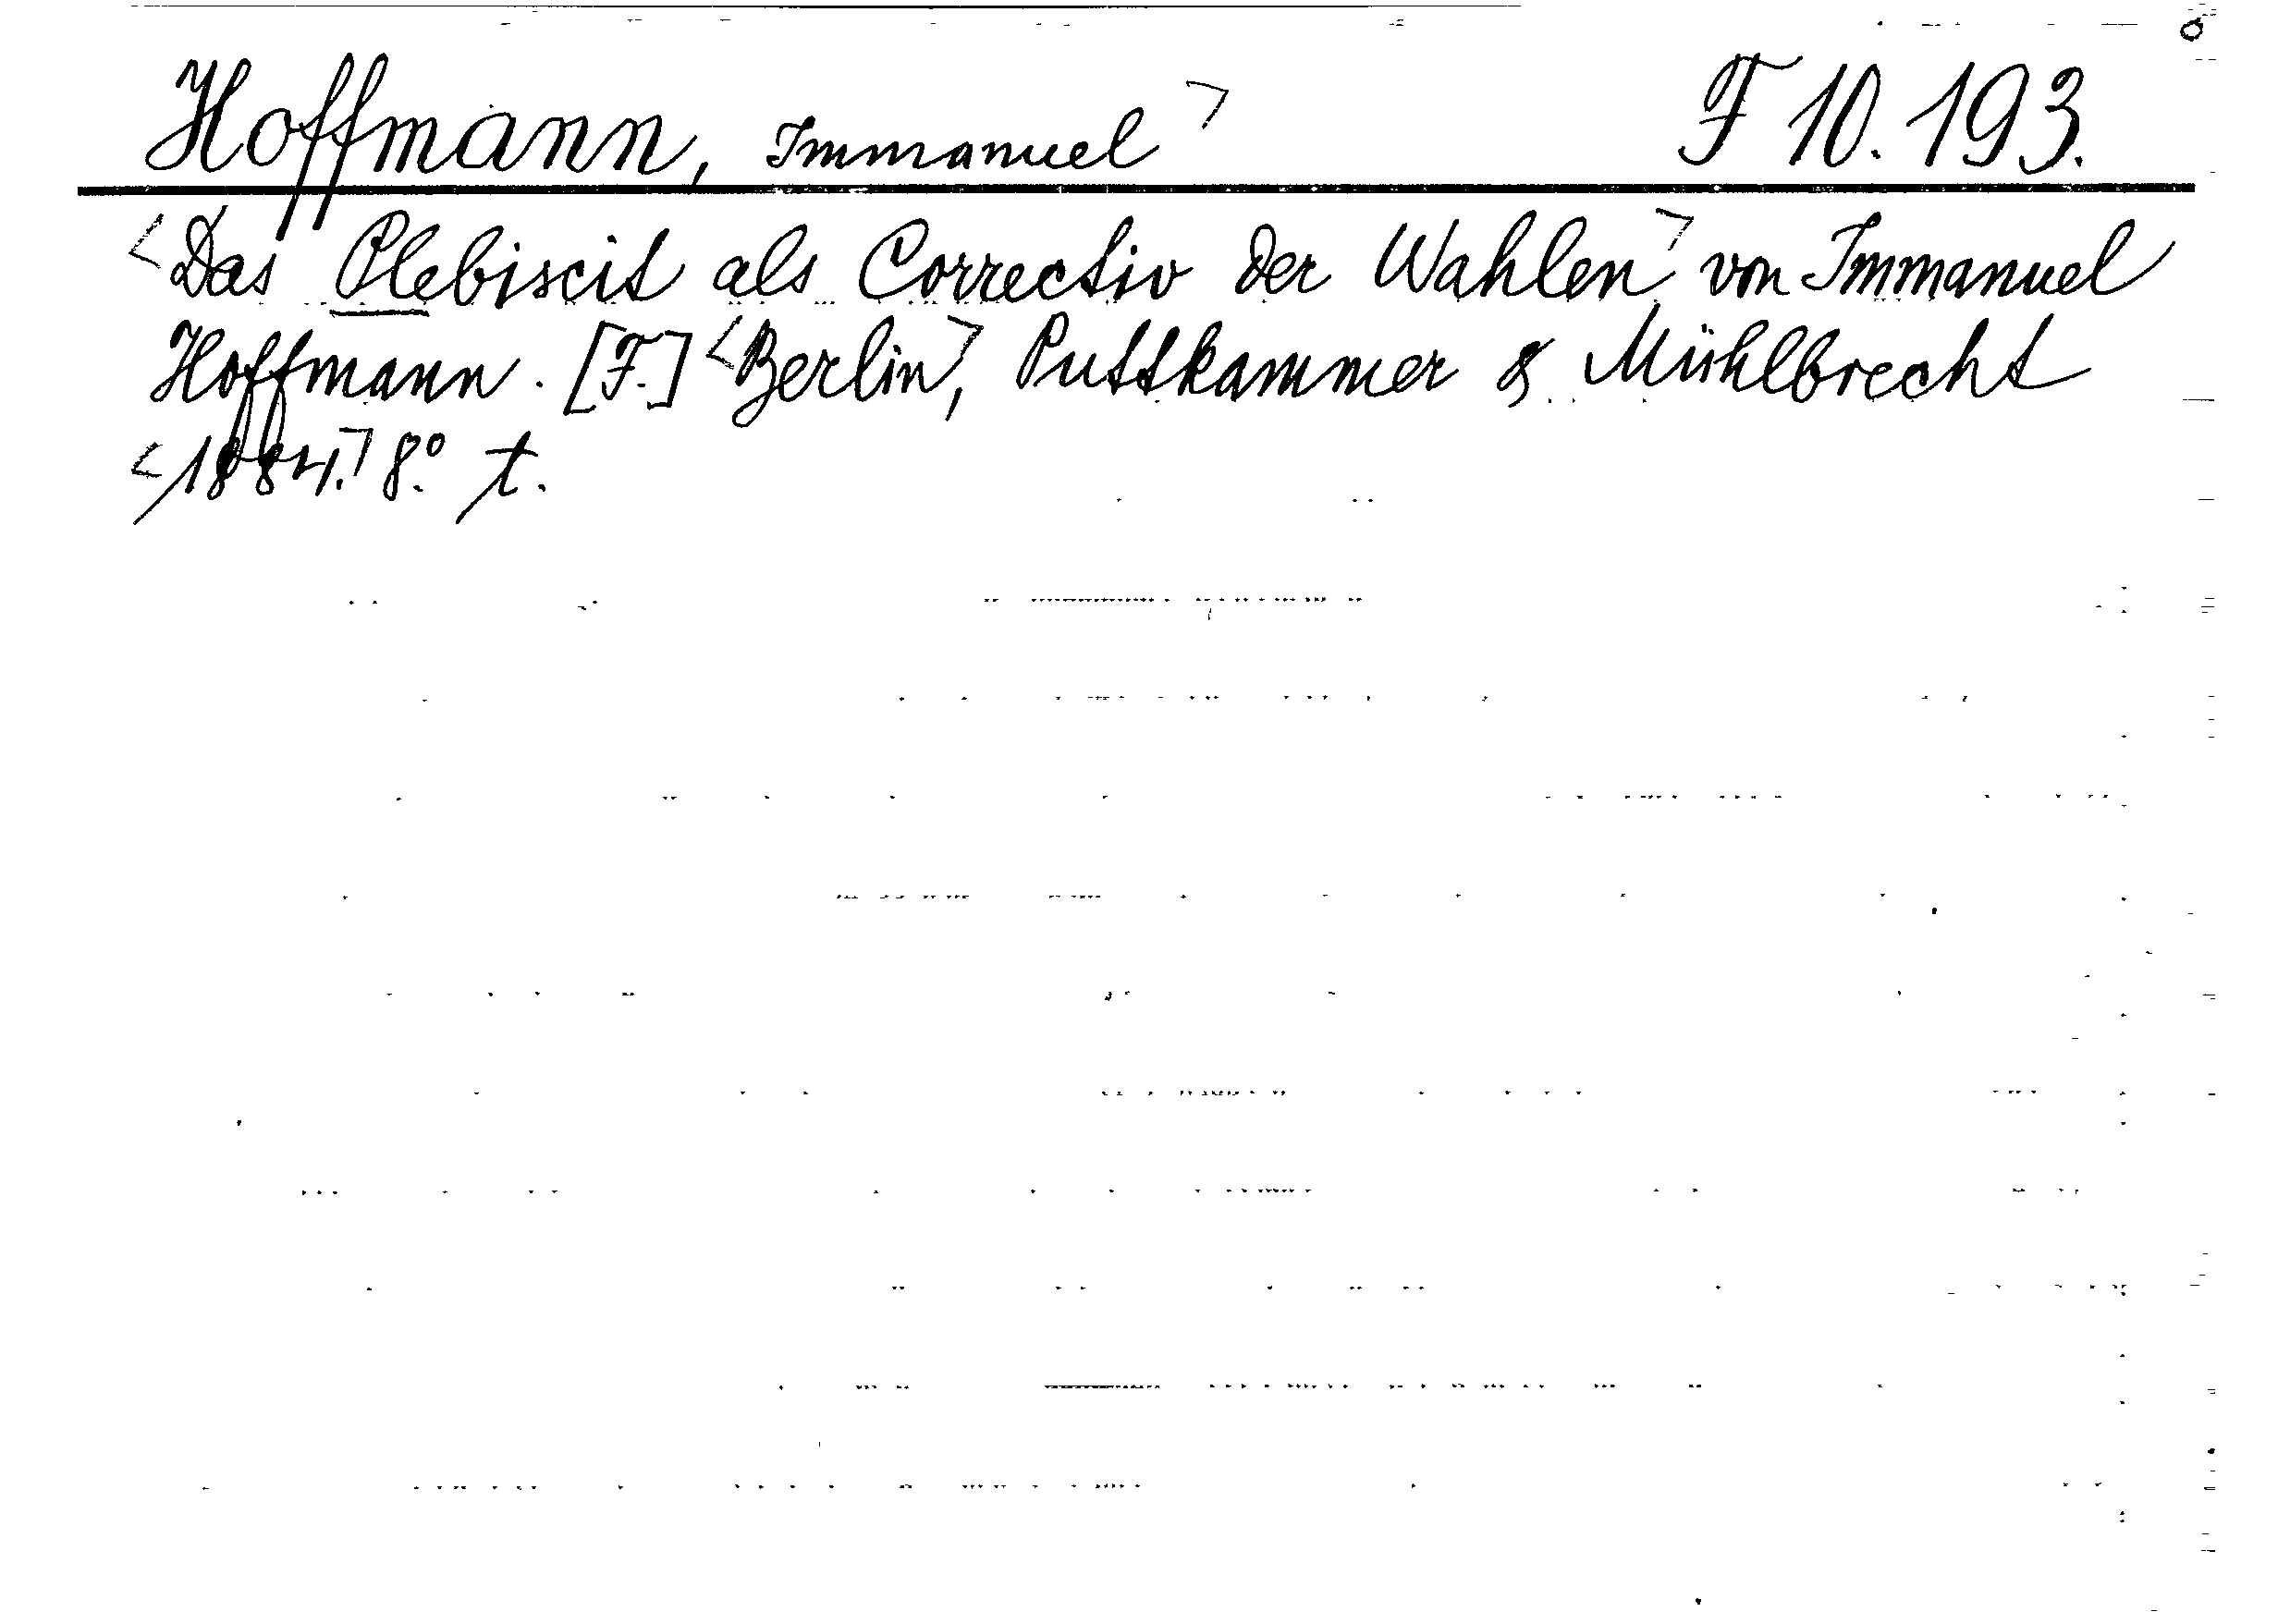 Hoffmann, Immanuel ⌝ F 10. 193.
<Das Plebiscit als Correctiv der Wahlen⌝ von Immanuel
Hoffmann. [F.] <Berlin⌝, Puttkammer & Mühlbrecht
<1884.⌝ 8.° t.